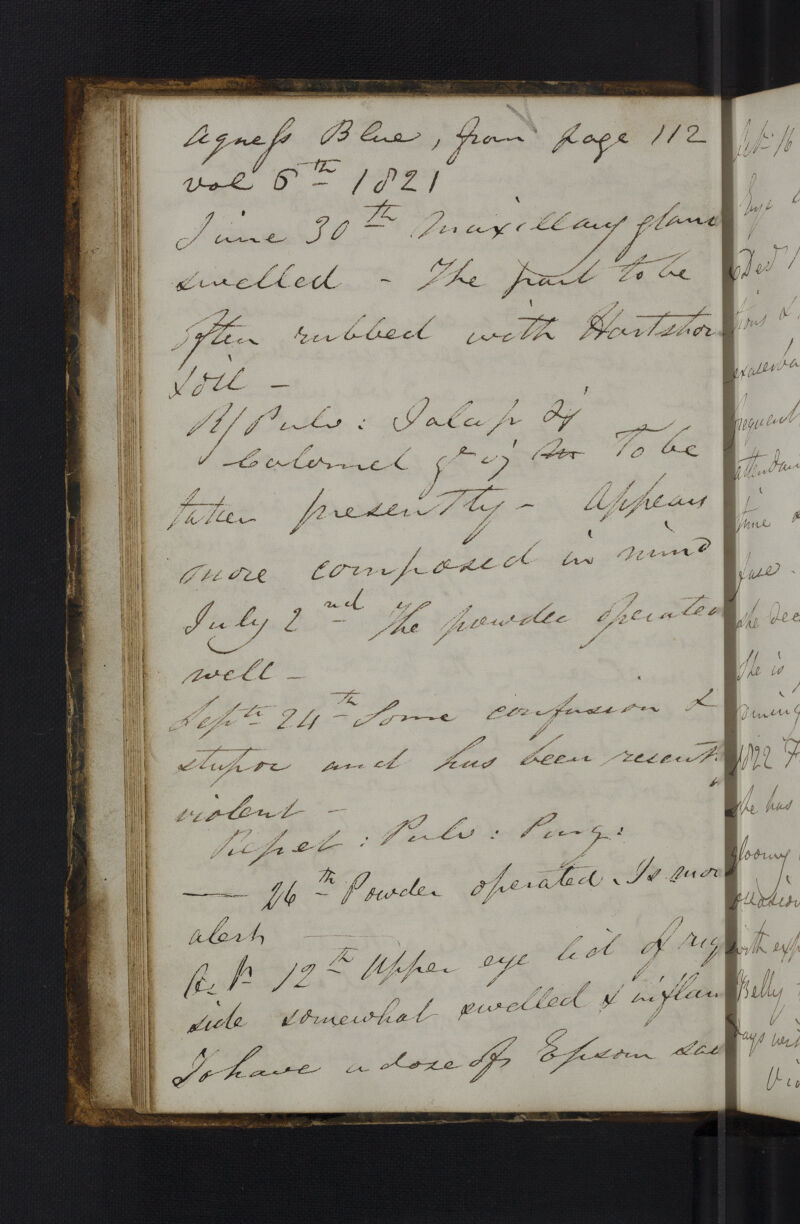 Agness Blue, from page 112
vol 6th 1821
June 30th Maxillary glan
swelled - The part to be
often rubbed with Hartshor
& oil -
R/ Pulv: Jalap ʒj
Calomel gr vj To be
taken presently - Appears
more composed in mind
July 2nd The powder operated
well -
Septr 24th Some confusion &
stupor and has been recent
violent -
Repet: Pulv: Purg:
— 26th Powder operated. Is more
alert
12th Upper eye lid of rig
side somewhat swelled & inflam
To have a dose of Epsom sal
16
Eye
Decr 1
tions &
exacerba
frequent
attendan
time
fuse.
she
She is
1822 F
she has
gloomy
occasion
with exp
Belly
days